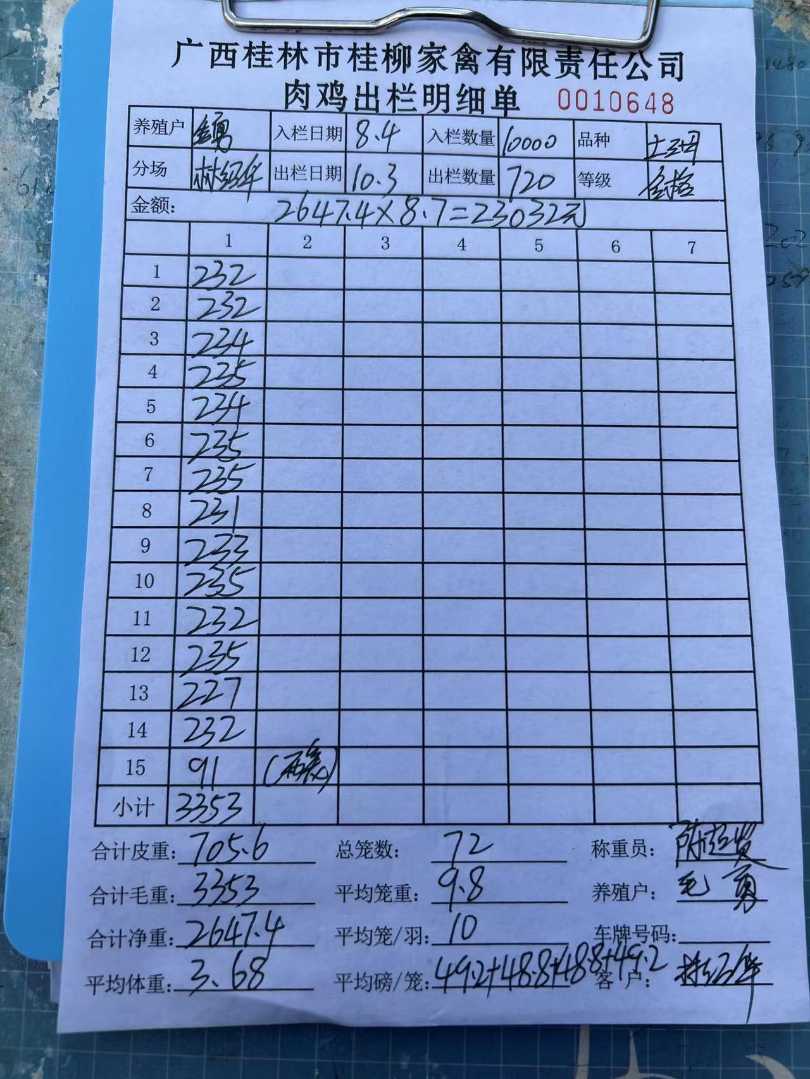 广西桂林市桂柳家禽有限责任公司
肉鸡出栏明细单 0010648
养殖户 入栏日期 8.4 入栏数量 10000 品种
分场 林绍华 出栏日期 10.3 出栏数量 720 等级 合格
金额: 2647.4×8.7=23032元
1 2 3 4 5 6 7
1 232
2 232
3 234
4 235
5 234
6 235
7 235
8 231
9 233
10 235
11 232
12 235
13 227
14 232
15 91
小计 3353
合计皮重: 705.6 总笼数: 72 称重员:
合计毛重: 3353 平均笼重: 9.8 养殖户: 毛勇
合计净重: 2647.4 平均笼/羽: 10 车牌号码:
平均体重: 3.68 平均磅/笼: 49.2+48.8+48.8+49.2 客户: 林绍华